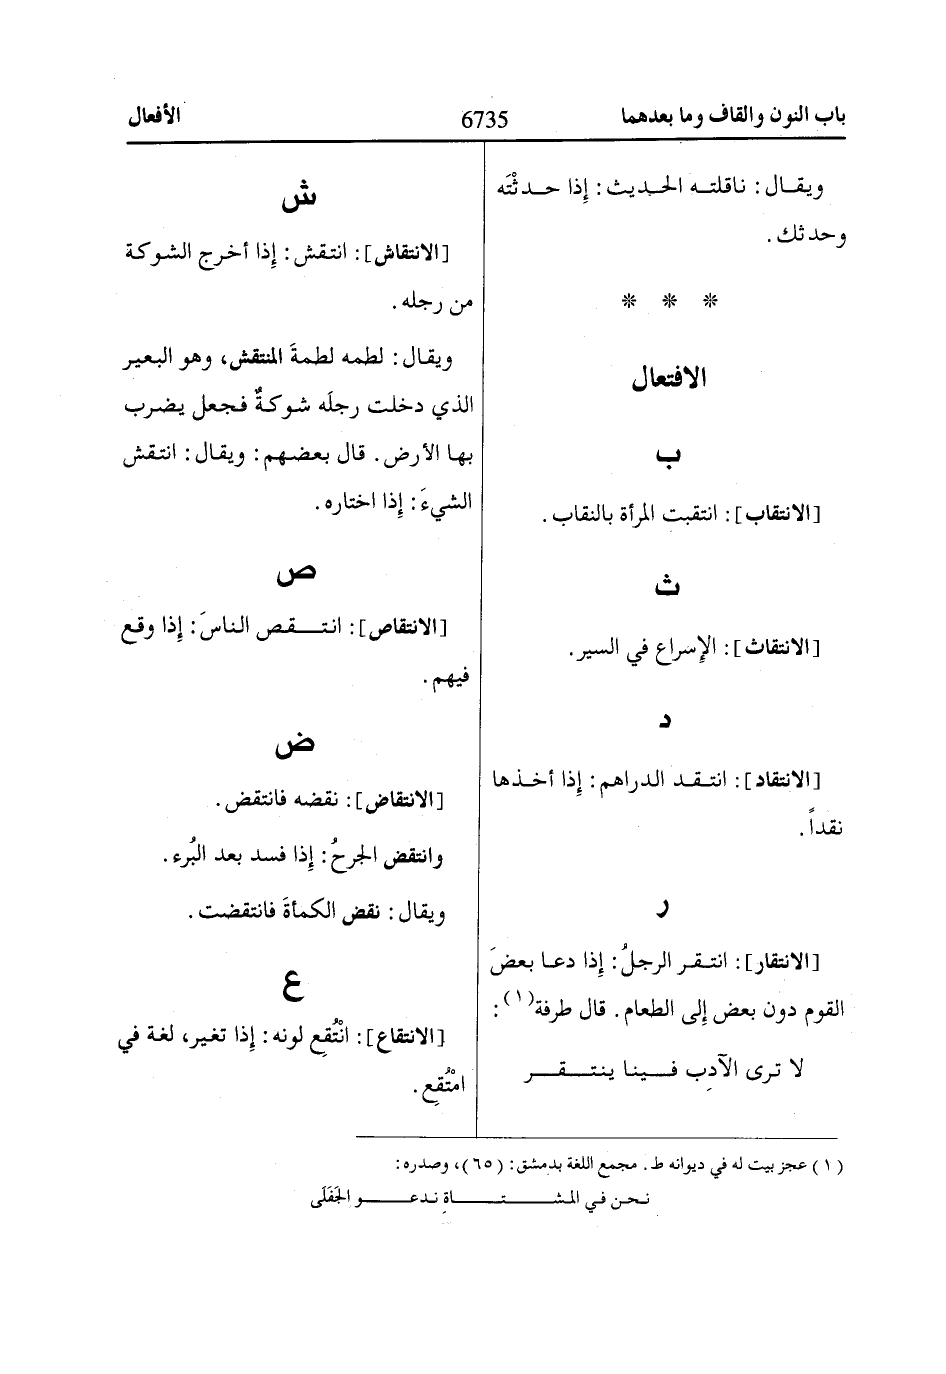 باب النون والقاف وما بعدهما 6735 الأفعال
ويقال: ناقلته الحديث: إذا حدثْتَه
وحدثك.
* * *
الافتعال
ب
[الانتقاب]: انتقبت المرأة بالنقاب.
ث
[الانتقاث]: الإسراع في السير.
د
[الانتقاد]: انتقد الدراهم: إذا أخذها
نقداً.
ر
[الانتقار]: انتقر الرجلُ: إذا دعا بعضَ
القوم دون بعض إلى الطعام. قال طرفة(١):
لا ترى الآدِب فينا ينتقر
ش
[الانتقاش]: انتقش: إذا أخرج الشوكة
من رجله.
ويقال: لطمه لطمةَ المنتقش، وهو البعير
الذي دخلت رجلَه شوكةٌ فجعل يضرب
بها الأرض. قال بعضهم: ويقال: انتقش
الشيءَ: إذا اختاره.
ص
[الانتقاص]: انتقص الناسَ: إذا وقع
فيهم.
ض
[الانتقاض]: نقضه فانتقض.
وانتقض الجرحُ: إذا فسد بعد البُرء.
ويقال: نقض الكمأةَ فانتقضت.
ع
[الانتقاع]: انْتُقِع لونه: إذا تغير، لغة في
امْتُقِع.
(١) عجز بيت له في ديوانه ط. مجمع اللغة بدمشق: (٦٥)، وصدره:
نحن في المشتاةِ ندعو الجَفَلَى